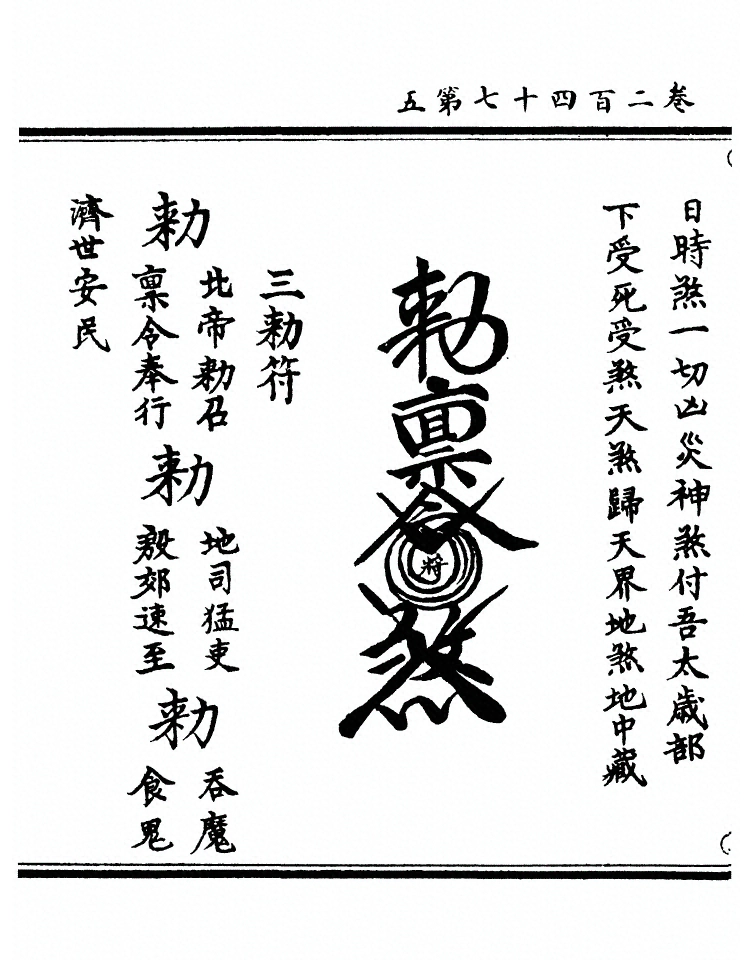 卷二百四十七第五
日時煞一切凶災神煞付吾太歲部
下受死受煞天煞歸天界地煞地中藏
勑禀令將煞
三勑符
勑
北帝勑召
禀令奉行
勑
地司猛吏
殷郊速至
勑
吞魔
食鬼
濟世安民